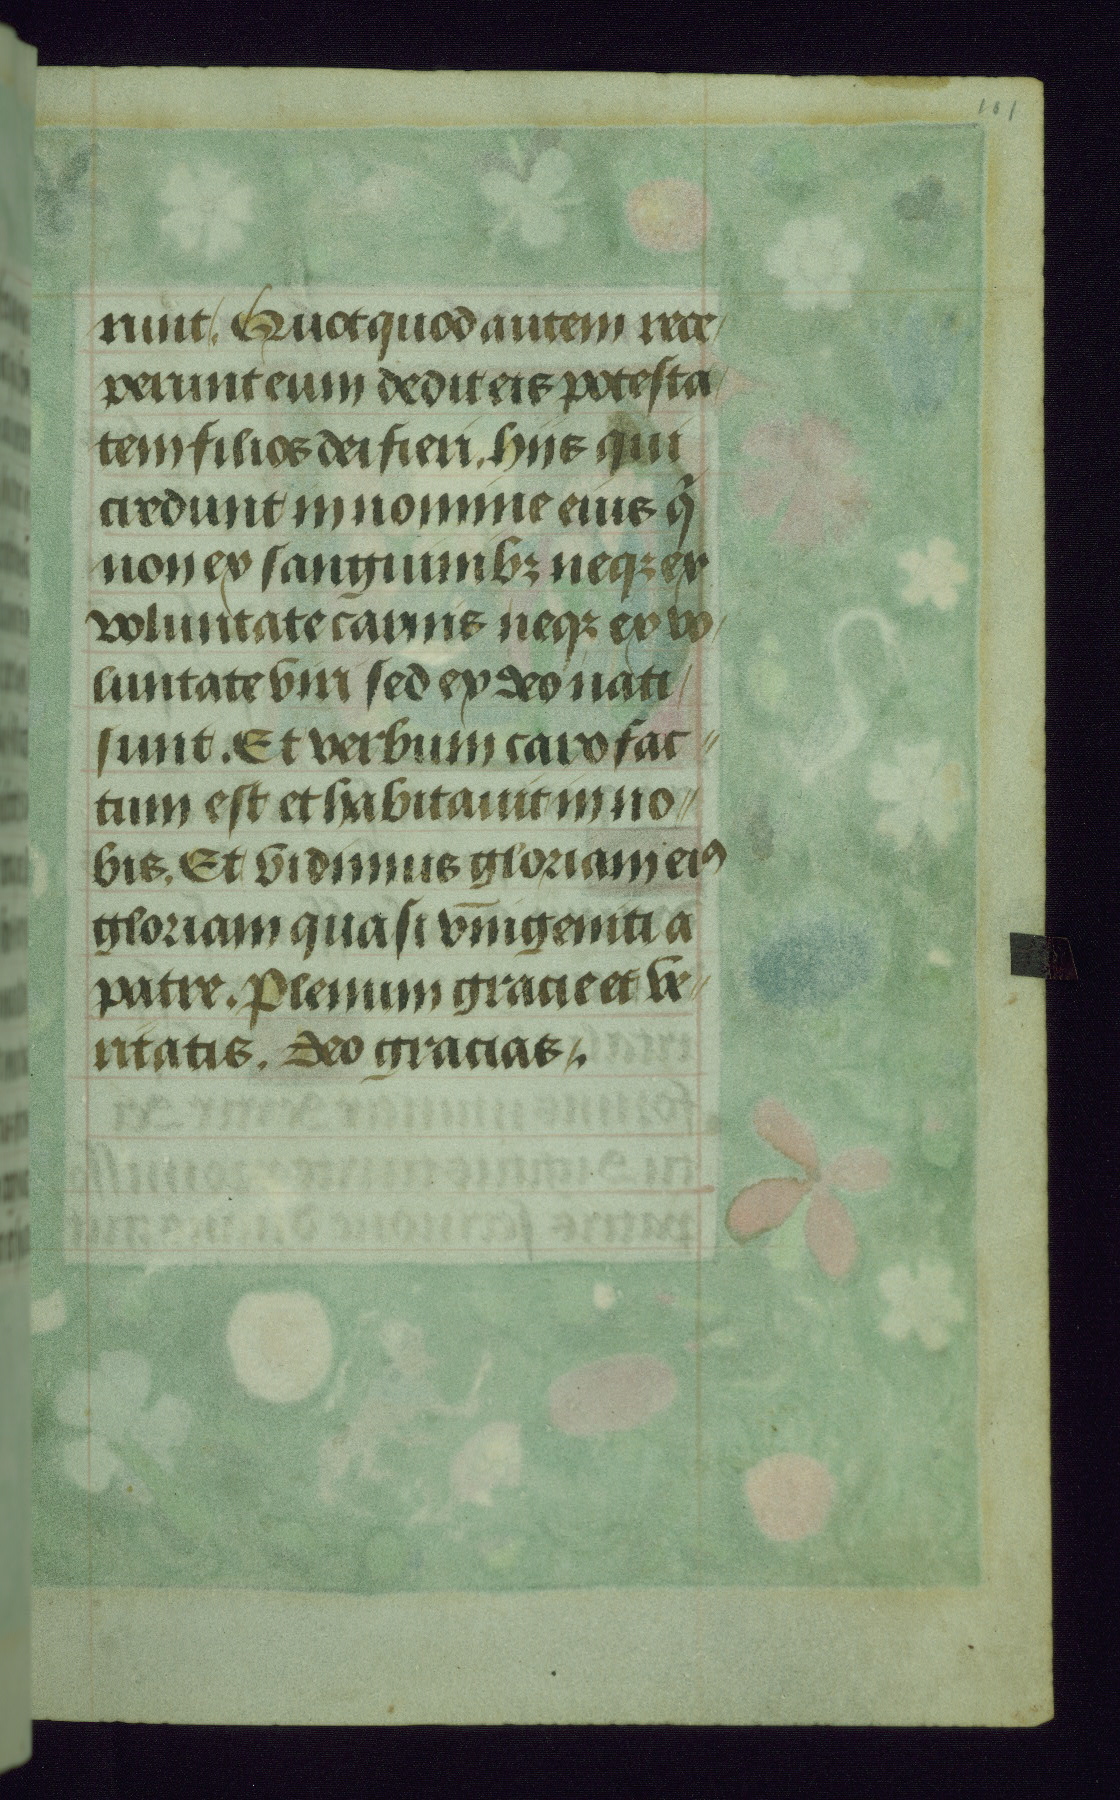 101
runt. Quotquod autem rece
perunt eum dedit eis potesta
tem filios dei fieri. hiis qui
credunt in nomine eius q̃
non ex sanguinibꝫ neqꝫ ex
voluntate carnis neqꝫ ex vo
luntate viri sed ex deo nati
sunt. Et verbum caro fac
tum est et habitauit in no
bis. Et vidimus gloriam eiꝰ
gloriam quasi vnigeniti a
patre. Plenum gracie et ve
ritatis. Deo gracias.